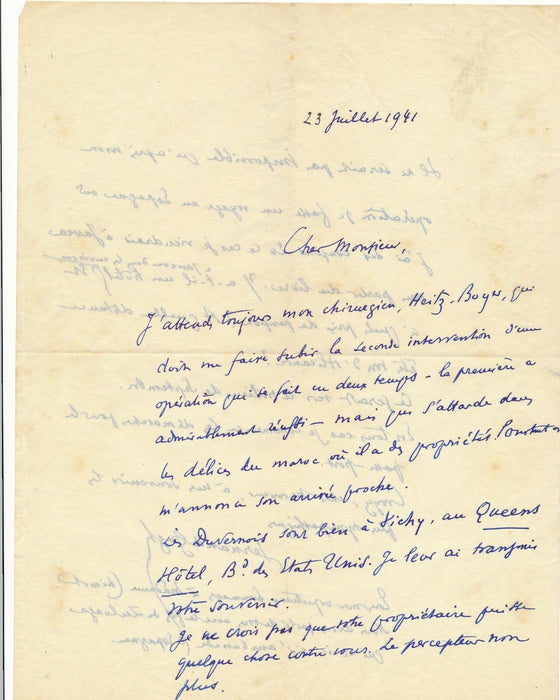 23 Juillet 1941
Cher Monsieur,
J'attends toujours mon chirurgien, Heitz-Boyer, qui
doit me faire subir la seconde intervention d'une
opération qui se fait en deux temps - la première a
admirablement réussi - mais qui s'attarde dans
les délices du Maroc où il a des propriétés. Pourtant on
m'annonce son arrivée proche.
Les Duvernois sont bien à Vichy, au Queens
Hôtel, Bd des Etats Unis. Je leur ai transmis
votre souvenir.
Je ne crois pas que votre propriétaire puisse
quelque chose contre vous. Le percepteur non
plus.